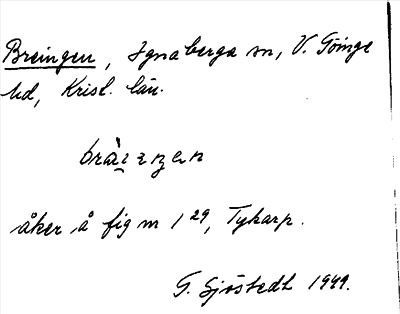 Breingen, Ignaberga sn, V. Göinge
hd, Krist. län.
åker å fig m 1 29, Tykarp.
G. Sjöstedt 1949.